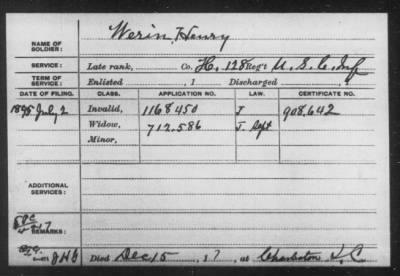 NAME OF SOLDIER: Werin, Henry
SERVICE: Late rank, Co. H, 128 Reg't U. S. C. Inf
TERM OF SERVICE: Enlisted , 1 Discharged , 1
DATE OF FILING. CLASS. APPLICATION NO. LAW. CERTIFICATE NO.
1895 July 2 Invalid, 1168450 J 908.642
Widow, 712.586 J. Dept
Minor,
ADDITIONAL SERVICES:
REMARKS:
Died Dec 15 , 17, at Charleston S.C.